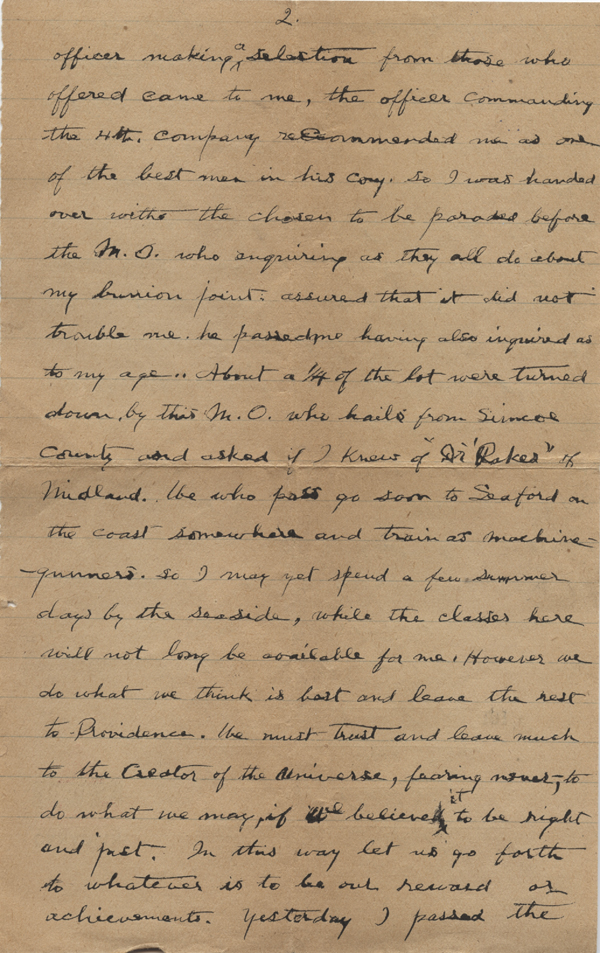 2.
officer making a selection from those who
offered came to me, the officer commanding
the 4th. company recommended me as one
of the best men in his coy. so I was handed
over with the chosen to be parades before
the M.O. who enquiring as they all do about
my bunion joint. assured that it did not
trouble me. he passed me having also inquired as
to my age.. About a 1/4 of the lot were turned
down, by this M.O. who hails from Simcoe
County and asked if I knew of "Dr Rakes" of
Midland. We who pass go soon to Seaford on
the coast somewhere and train as machine-
gunners. so I may yet spend a few summer
days by the seaside, while the classes here
will not long be available for me. However we
do what we think is best and leave the rest
to Providence. We must trust and leave much
to the Creator of the Universe, fearing never, to
do what we may, if we believe it to be right
and just. In this way let us go forth
to whatever is to be our reward or
achievements. Yesterday I passed the